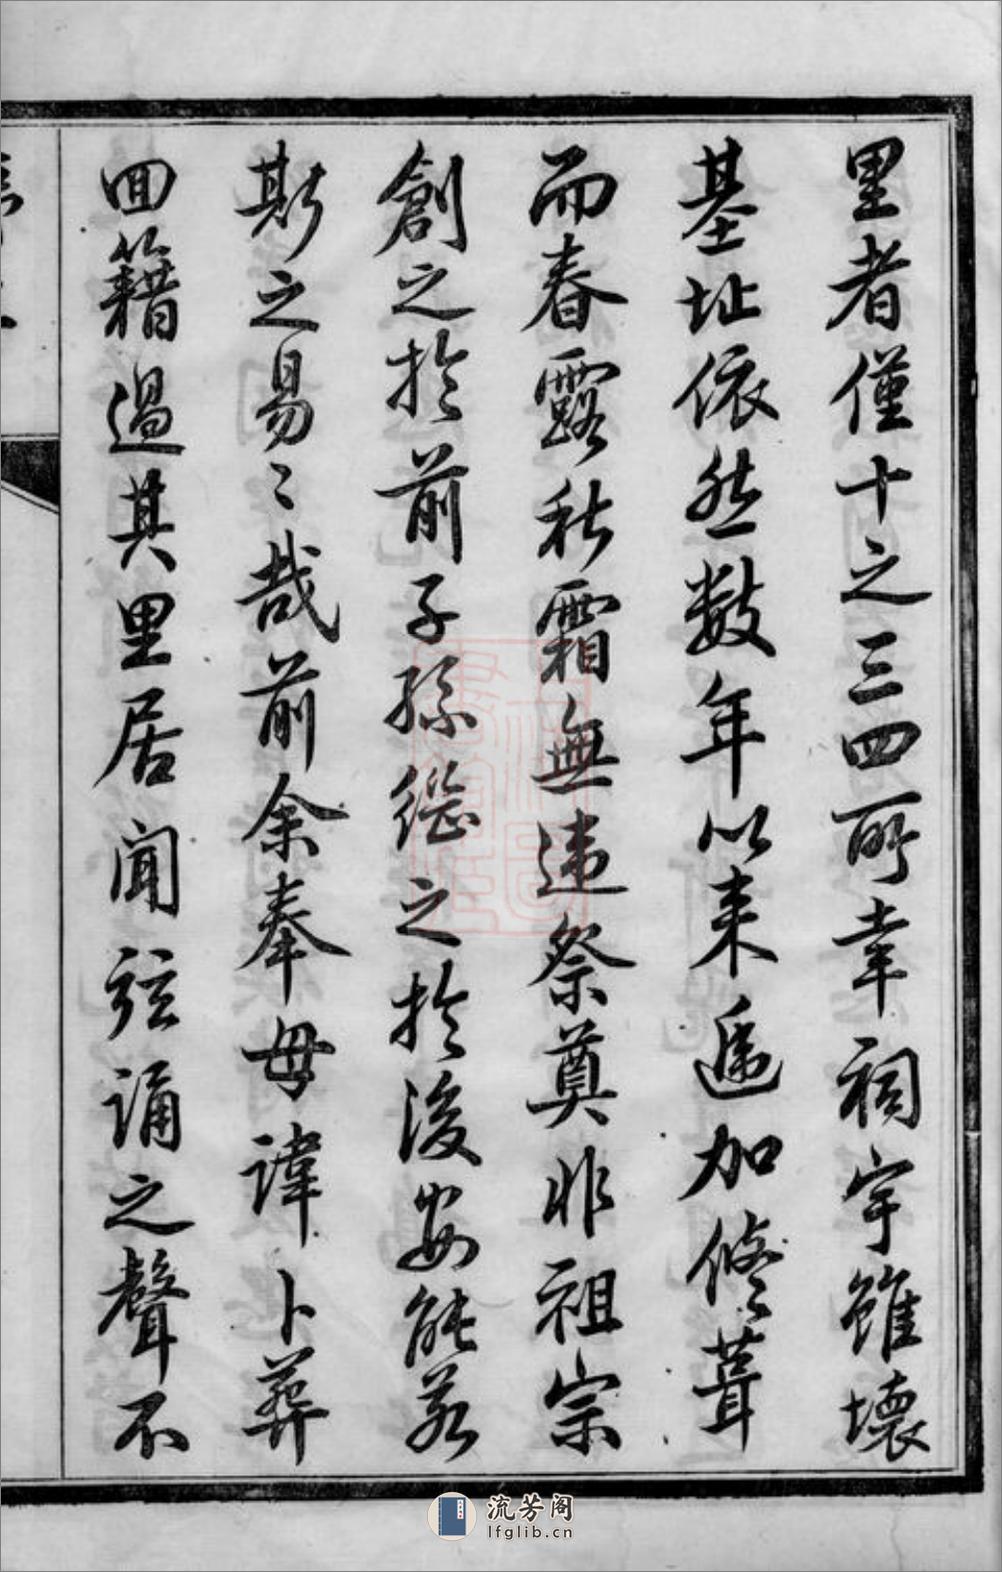 里者僅十之三四所幸祠宇雖壞
基址依然數年以来遞加修葺
而春露秋霜無違祭奠非祖宗
創之於前子孫繼之於後安能若
斯之易〻哉前余奉母諱卜葬
回籍過其里居聞弦誦之聲不
流芳阁
lfglib.cn